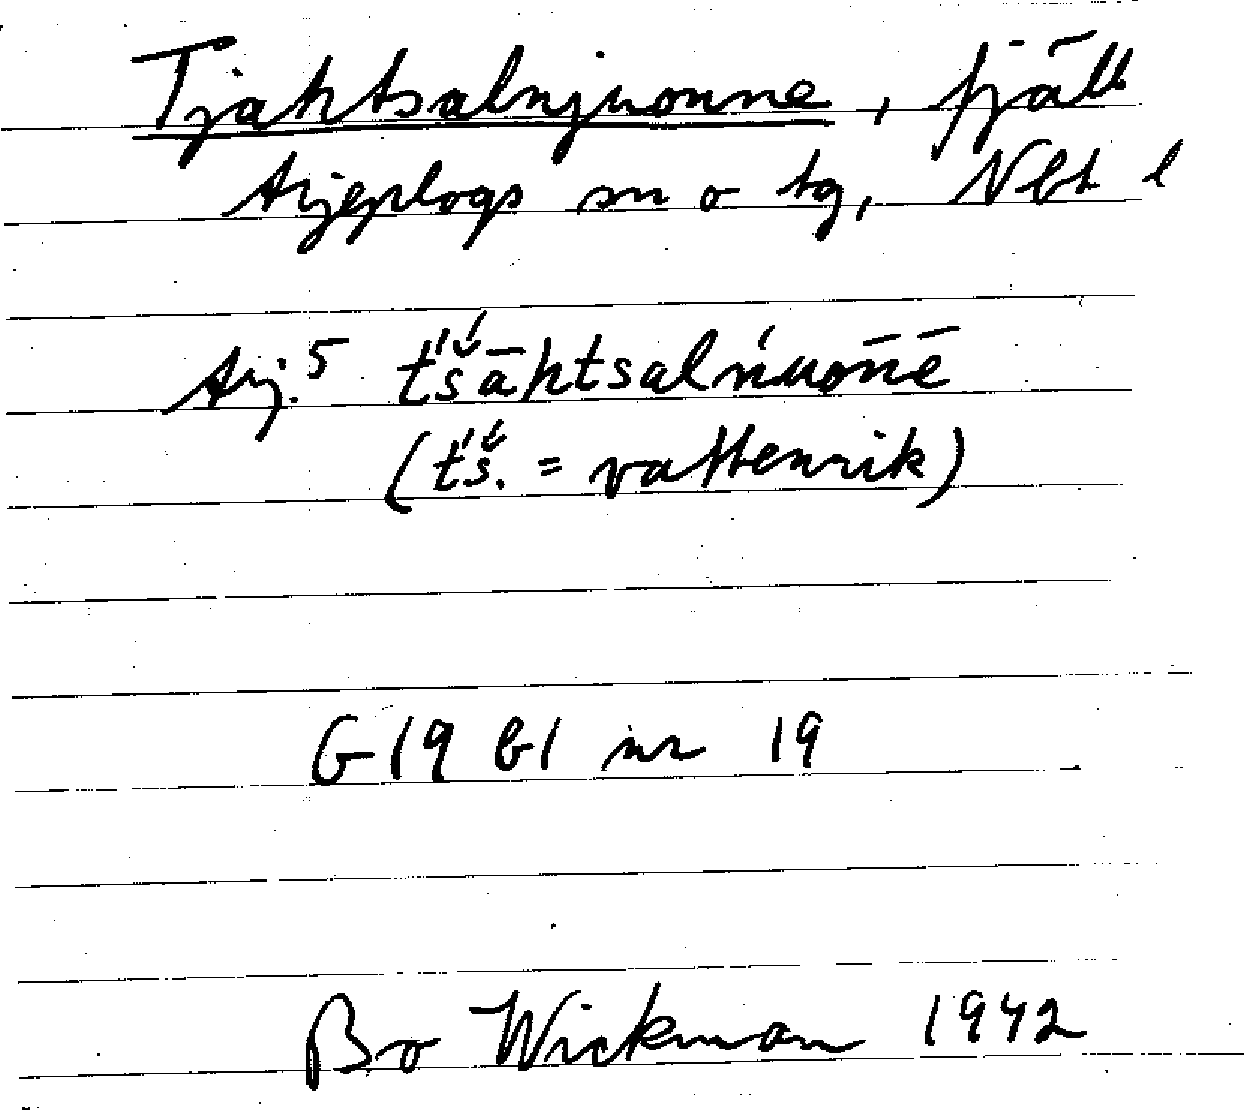 Tjahtsalnjuonne, fjäll
Arjeplogs sn o tg, Nbt l
Arj.⁵ t́š́āhtsalńuōńē
(t́š́. = vattenrik)
G19 b1 nr 19
Bo Wickman 1942